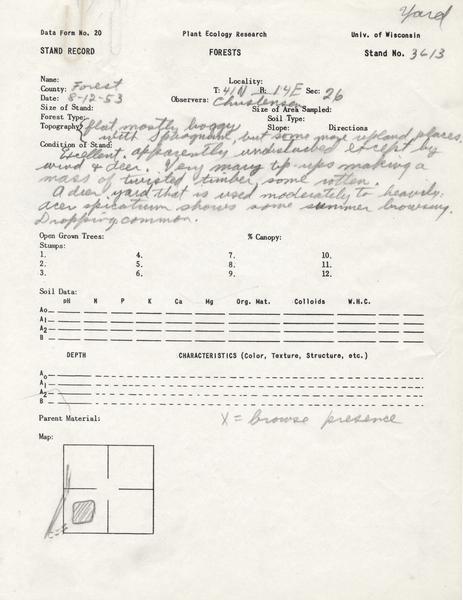 Yard
Data Form No. 20 Plant Ecology Research Univ. of Wisconsin
STAND RECORD FORESTS Stand No. 3613
Name: Locality:
County: Forest T: 41N R: 14E Sec: 26
Date: 8-12-53 Observers: Christensen
Size of Stand: Size of Area Sampled:
Forest Type: Soil Type:
Topography: flat mostly boggy Slope: Directions
with Sphagnum, but some more upland places.
Condition of Stand:
Excellent. apparently undisturbed except by
wind & deer. Very many tip-ups making a
mass of twisted timber, some rotten.
A deer yard that is used moderately to heavily.
Acer spicatum shows some summer browsing.
Dropping common.
Open Grown Trees: % Canopy:
Stumps:
1. 4. 7. 10.
2. 5. 8. 11.
3. 6. 9. 12.
Soil Data:
pH N P K Ca Mg Org. Mat. Colloids W.H.C.
Ao
A1
A2
B
DEPTH CHARACTERISTICS (Color, Texture, Structure, etc.)
Ao
A1
A2
B
Parent Material: X = browse presence
Map: